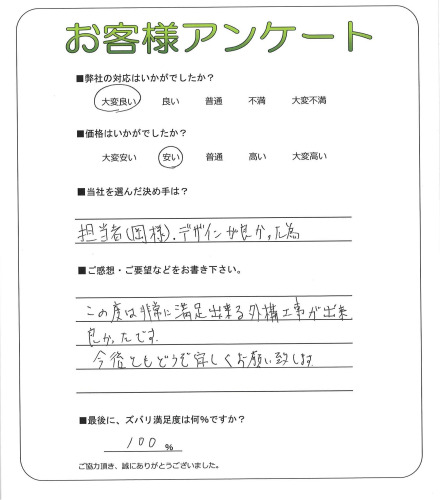 お客様アンケート
■弊社の対応はいかがでしたか?
大変良い 良い 普通 不満 大変不満
■価格はいかがでしたか?
大変安い 安い 普通 高い 大変高い
■当社を選んだ決め手は?
担当者(岡様).デザインが良かった為
■ご感想・ご要望などをお書き下さい。
この度は非常に満足出来る外構工事が出来
良かったです.
今後ともどうぞ宜しくお願い致します.
■最後に、ズバリ満足度は何%ですか?
100 %
ご協力頂き、誠にありがとうございました。